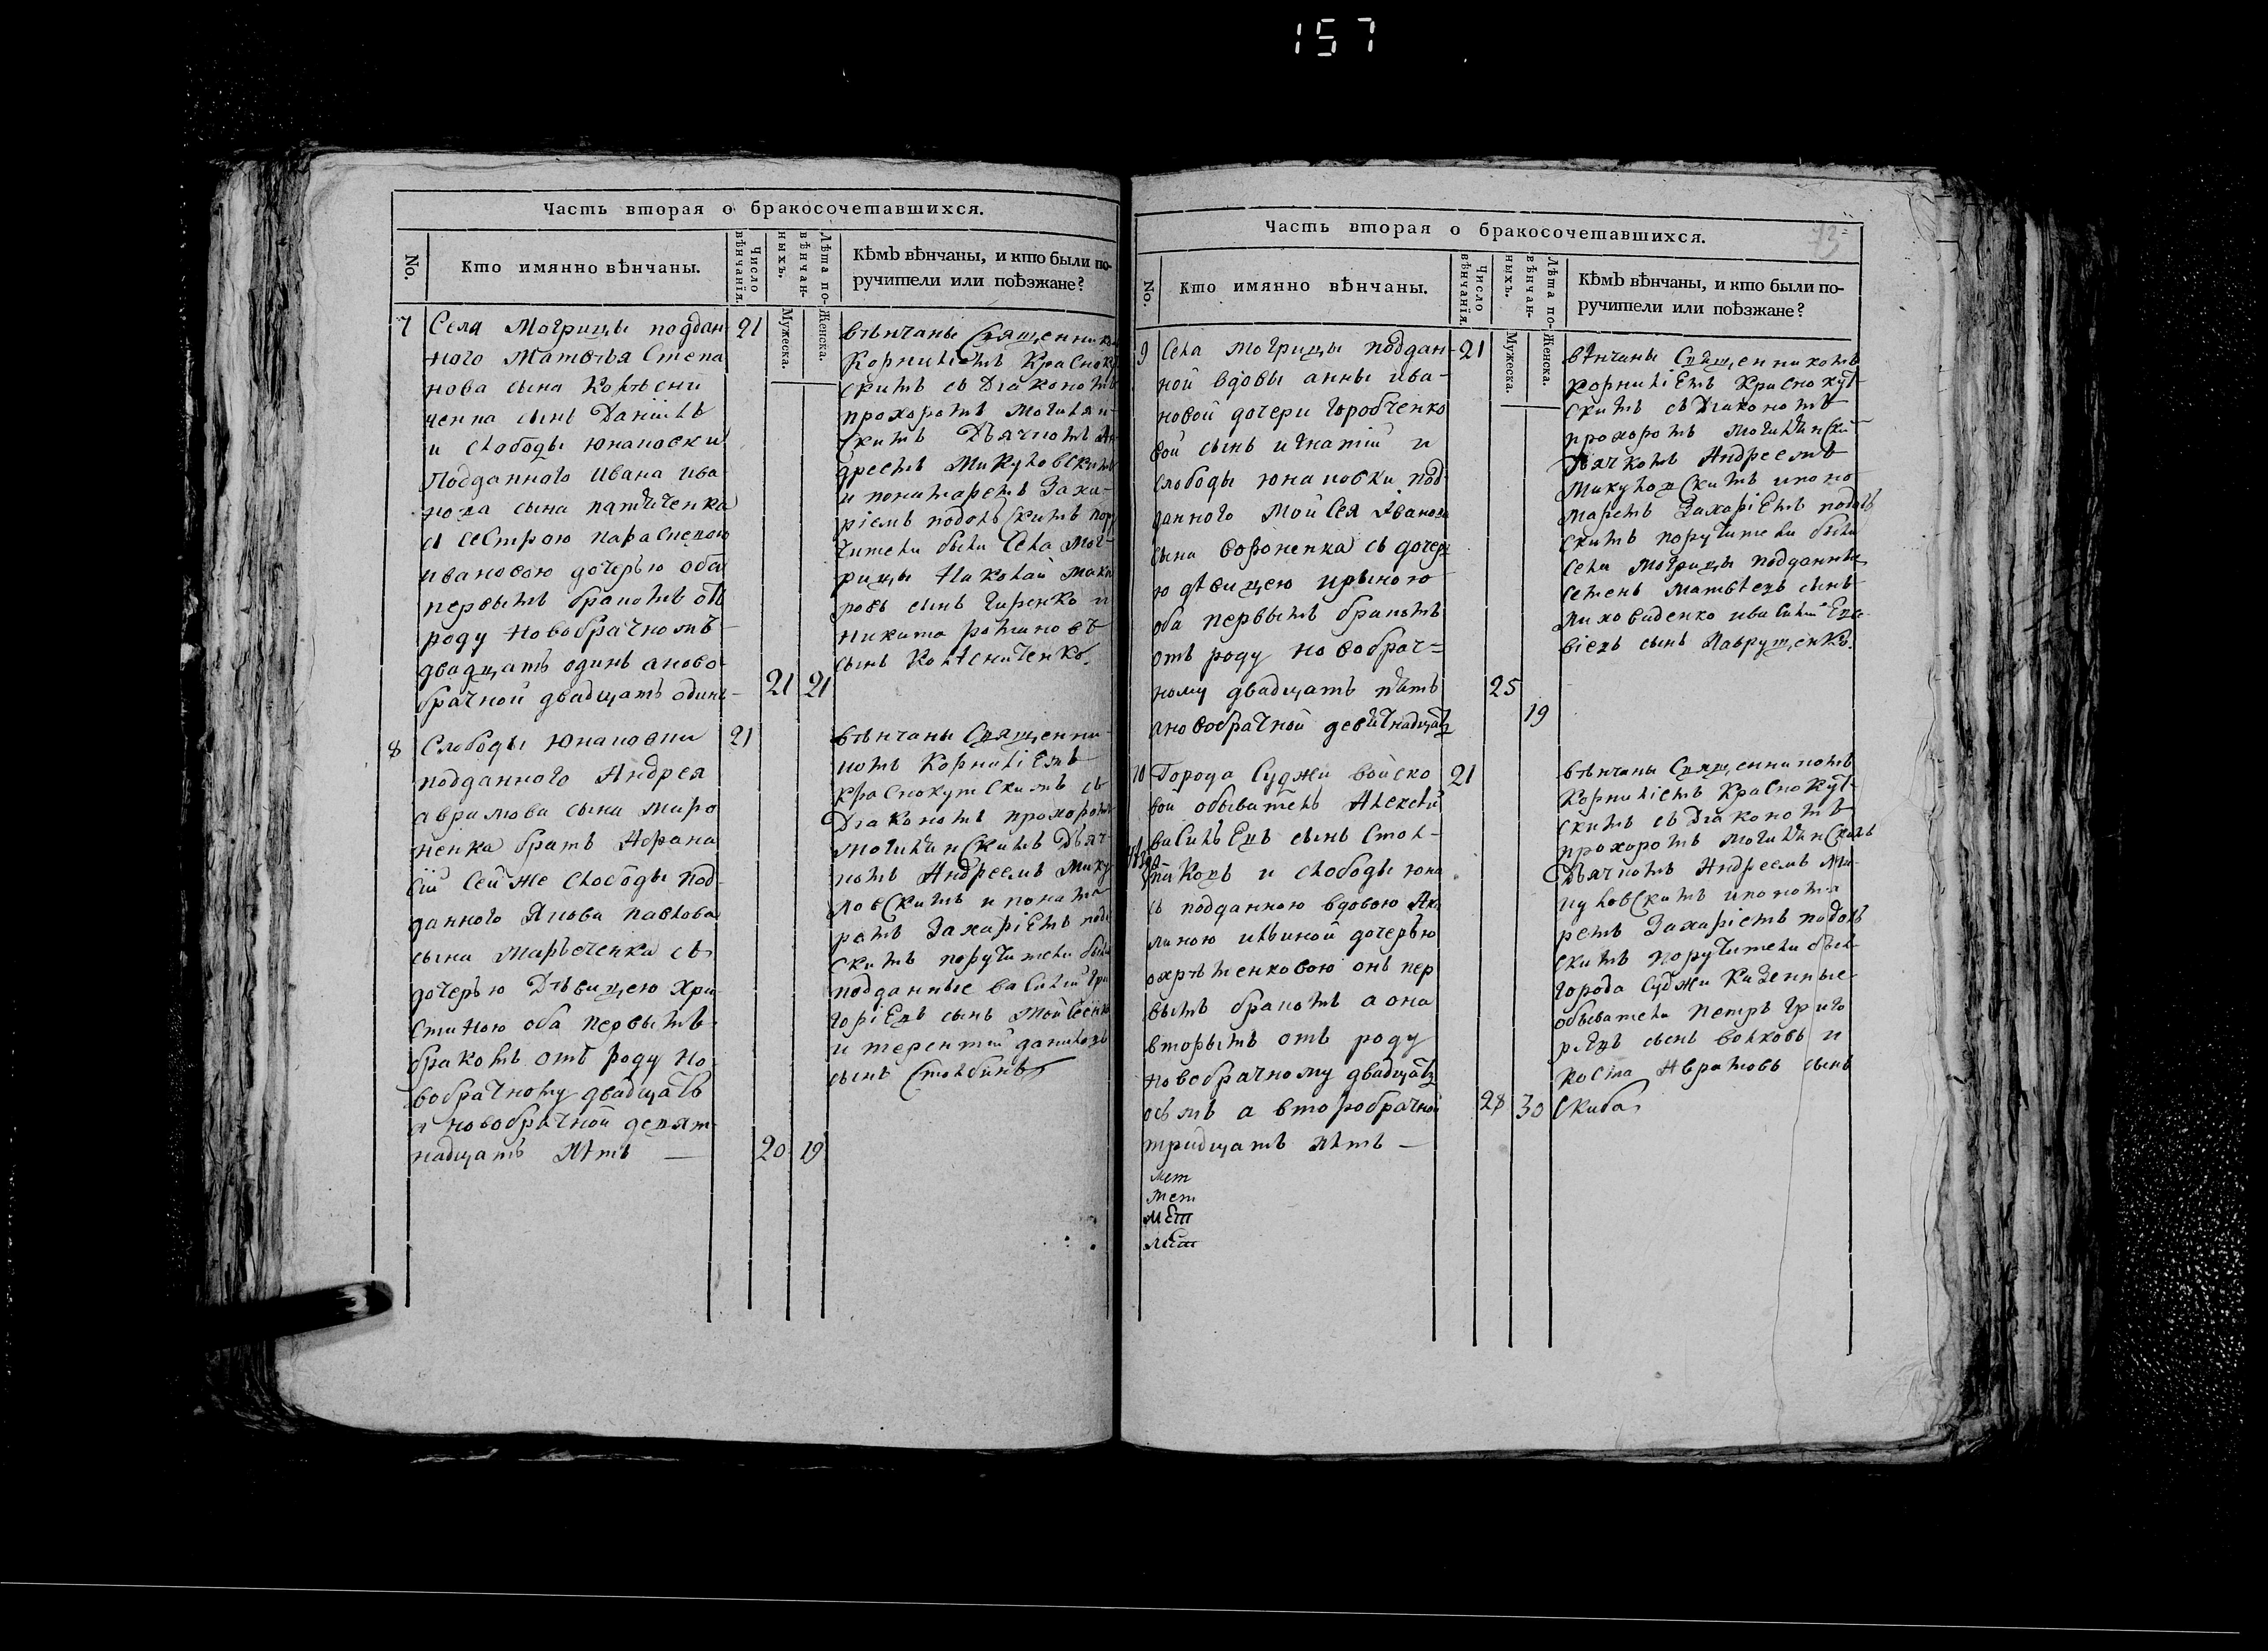 157
Часть вторая о бракосочетавшихся.
No.
Кто имянно вѣнчаны.
Число вѣнчанїя.
Лѣта повѣнчанныхъ.
Мужеска.
Женска.
Кѣмъ вѣнчаны, и кто были по-
ручители или поѣзжане?
7
Села Могрицы поддан-
ного Матвѣя Степа
нова сына Колѣсни
ченка сынъ Данїилъ
и слободы Юнаковки
подданного Ивана Ива
нова сына
съ сестрою Параскевою
Ивановою дочерью оба
первымъ бракомъ отъ
роду новобрачномъ
двадцать одинъ а ново-
брачной двадцать одинъ
21
21
21
вѣнчаны Священником
Корнилїемъ Краснокут
скимъ съ Дїакономъ
Прохоромъ Могилян-
скимъ Дьячкомъ Ан
дреемъ Микуловскимъ
и пономаремъ Заха-
рїемъ Подольскимъ пору
чители были Села Мог-
рицы Николай Мака
ровъ сынъ и
Никита Романовъ
сынъ Колѣсниченко.
8
Слободы Юнаковки
подданного Андрея
Аврамова сына Миро
ненка братъ Афана
сїй сей же слободы под-
данного Якова Павлова
сына Марченка съ
дочерью Дѣвицею Хри
стиною оба первымъ
бракомъ отъ роду но
вобрачному двадцать
а новобрачной девят
надцать лѣтъ —
21
20
19
вѣнчаны Священни-
комъ Корнилїемъ
Краснокутскимъ съ
Дїакономъ Прохоромъ
Могилянскимъ Дьяч-
комъ Андреемъ Мику
ловскимъ и понама
ремъ Захарїемъ Подол
скимъ поручители были
подданные Василий Гри
горїевъ сынъ Мойсеенко
и Терентий Даниловъ
сынъ Столбинъ
Часть вторая о бракосочетавшихся.
73
No.
Кто имянно вѣнчаны.
Число вѣнчанїя.
Лѣта повѣнчанныхъ.
Мужеска.
Женска.
Кѣмъ вѣнчаны, и кто были по-
ручители или поѣзжане?
9
Села Могрицы поддан-
ной вдовы Анны Ива-
новой дочери Горобченко
вой сынъ Игнатїй и
слободы Юнаковки под
данного Мойсея Иванова
сына Вороненка съ дочер
ю дѣвицею Ириною
оба первымъ бракомъ
отъ роду новобрач=
ному двадцать пять
а новобрачной девятнадцать
21
25
19
вѣнчаны Священникомъ
Корнилїемъ Краснокут-
скимъ съ Дїакономъ
Прохоромъ Могилянски
Дьячкомъ Андреемъ
Микуловскимъ и поно
маремъ Захарїемъ Подоль
скимъ поручители были
Села Могрицы подданные
Семенъ Матвѣевъ сынъ
Миховиденко и Василий
вїевъ сынъ Лаврущенко.
10
Города Суджи войско
вой обыватель Алексѣй
Васильевъ сынъ Стол-
никовъ и слободы Юна
съ подданною вдовою Аку
линою дочерью
он пер
вымъ бракомъ а она
вторымъ отъ роду
новобрачному двадцать
осьмъ а второбрачной
тридцать лѣтъ —
21
28
30
вѣнчаны Священникомъ
Корнилїемъ Краснокут-
скимъ съ Дїакономъ
Прохоромъ Могилянскимъ
Дьячкомъ Андреемъ Ми-
куловскимъ и понома
ремъ Захарїемъ Подоль
скимъ поручители были
города Суджи казенные
обыватели Петръ Григо
рьевъ сынъ Волковъ и
Косма Аврамовъ сынъ
Скиба